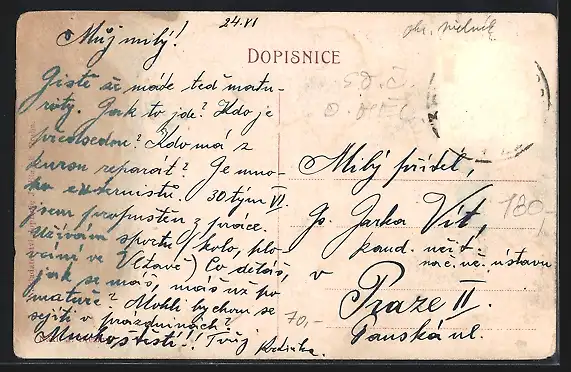 24.VI
okr. Mělník
Můj milý!
DOPISNICE
Jistě si máte teď matu-
rity. Jak to jde? Kdo je
předsedou? Kdo má z
kursu reparát? Je mno-
ho externistů. 30tým VI.
jsem propuštěn z práce.
Užívám sportu (kolo, plo-
vání ve Vltavě) Co děláš,
jak se máš, máš už po
matuře? Mohli bychom se
sejíti v prázdninách?
Mnoho štěstí!! Tvůj
70,-
Milý přítel,
p. Jarka Vít,
180,-
kand. učit.
nač. uč. ústavu
v
Praze II.
Panská ul.